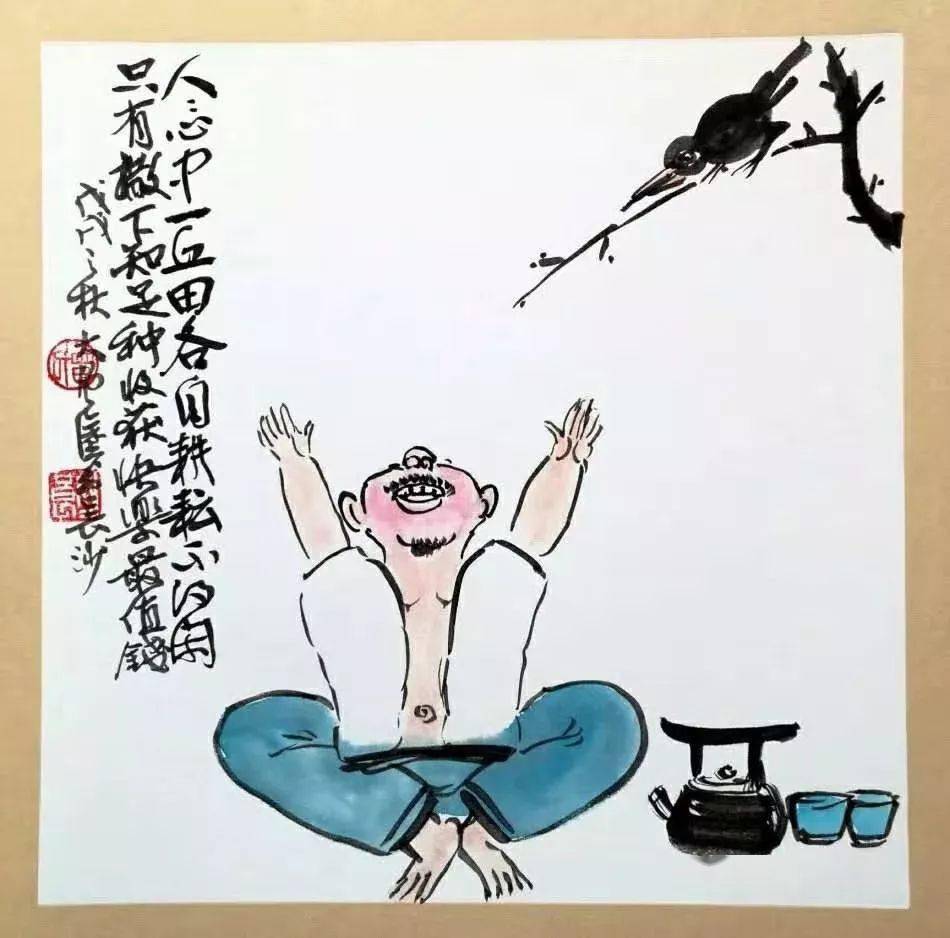 人心中一丘田各自耕耘不得闲
只有撒下知足种收获快乐最值钱
戊戌之秋大 長沙